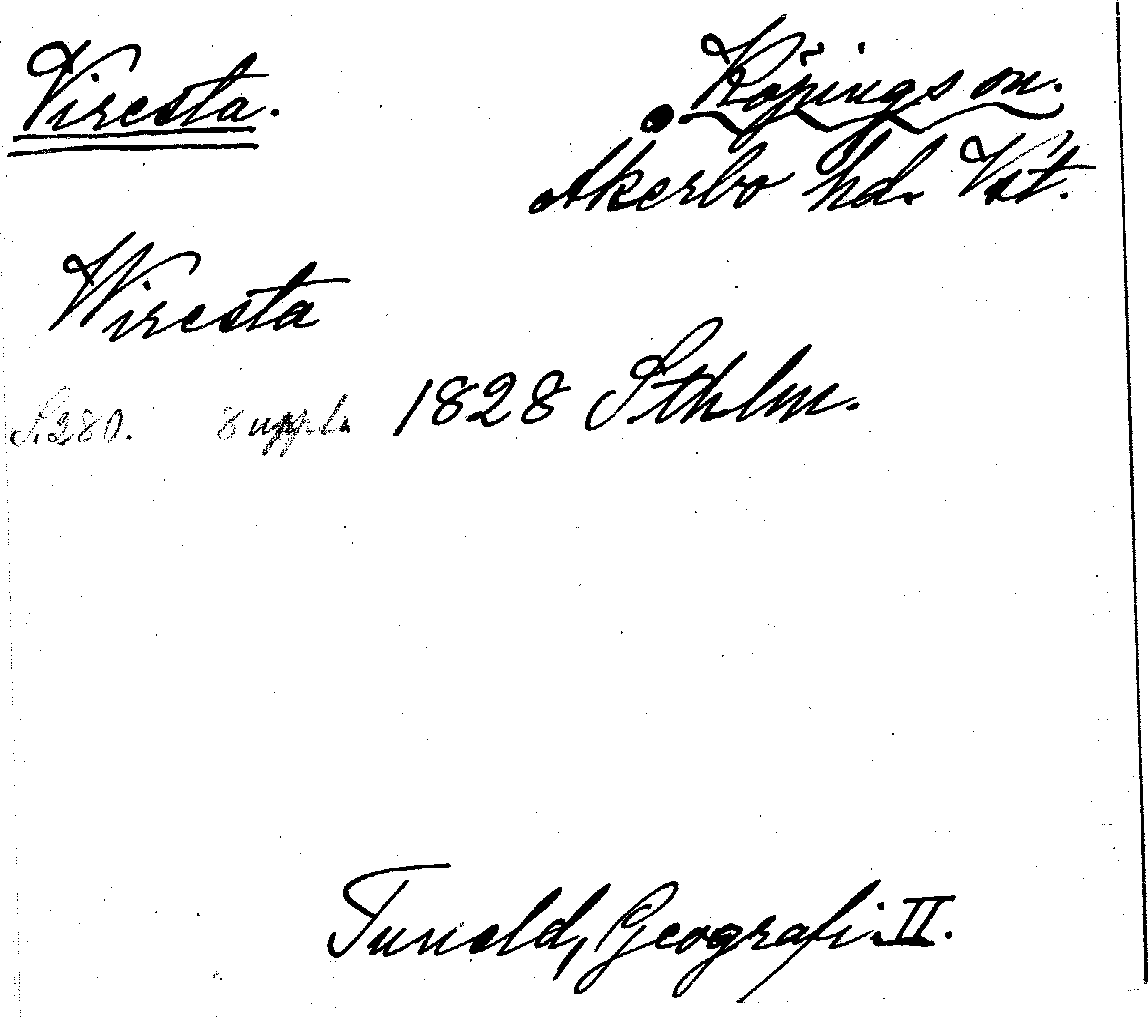 Viresta.
Köpings sn.
Åkerbo hd. Vst.
Wiresta
S. 280. 8 uppl. 1828 Sthlm.
Tuneld, Geografi. II.